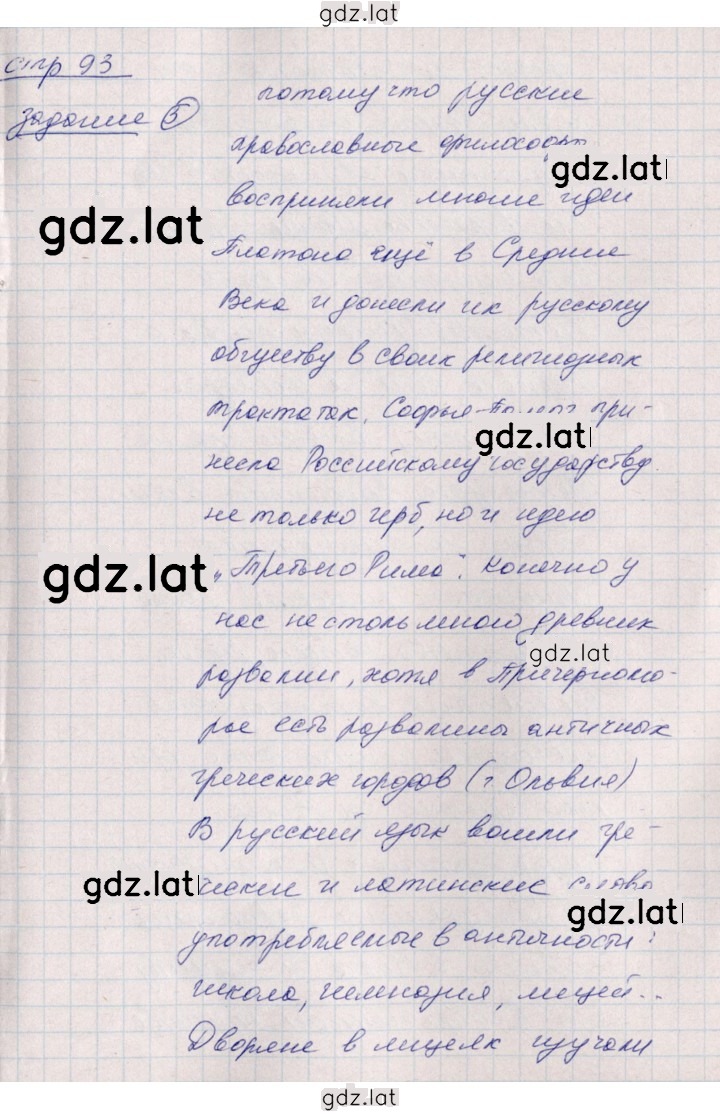 gdz.lat
стр 93
задание 5
потому что русские
православные философы
gdz.lat
восприняли многие идеи
gdz.lat
Платона ещё в Средние
Века и донесли их русскому
обществу в своих религиозных
трактатах. Софья при-
gdz.lat
несла Российскому государству
не только герб, но и идею
gdz.lat
„Третьего Рима". Конечно у
нас не столь много древних
gdz.lat
развалин, хотя в Причерномо-
рье есть развалины античных
греческих городов (г. Ольвия)
В русский язык вошли гре-
gdz.lat
ческие и латинские слова
gdz.lat
употребляемые в античности:
школа, гимназия, лицей..
Дворяне в лицеях изучали
gdz.lat